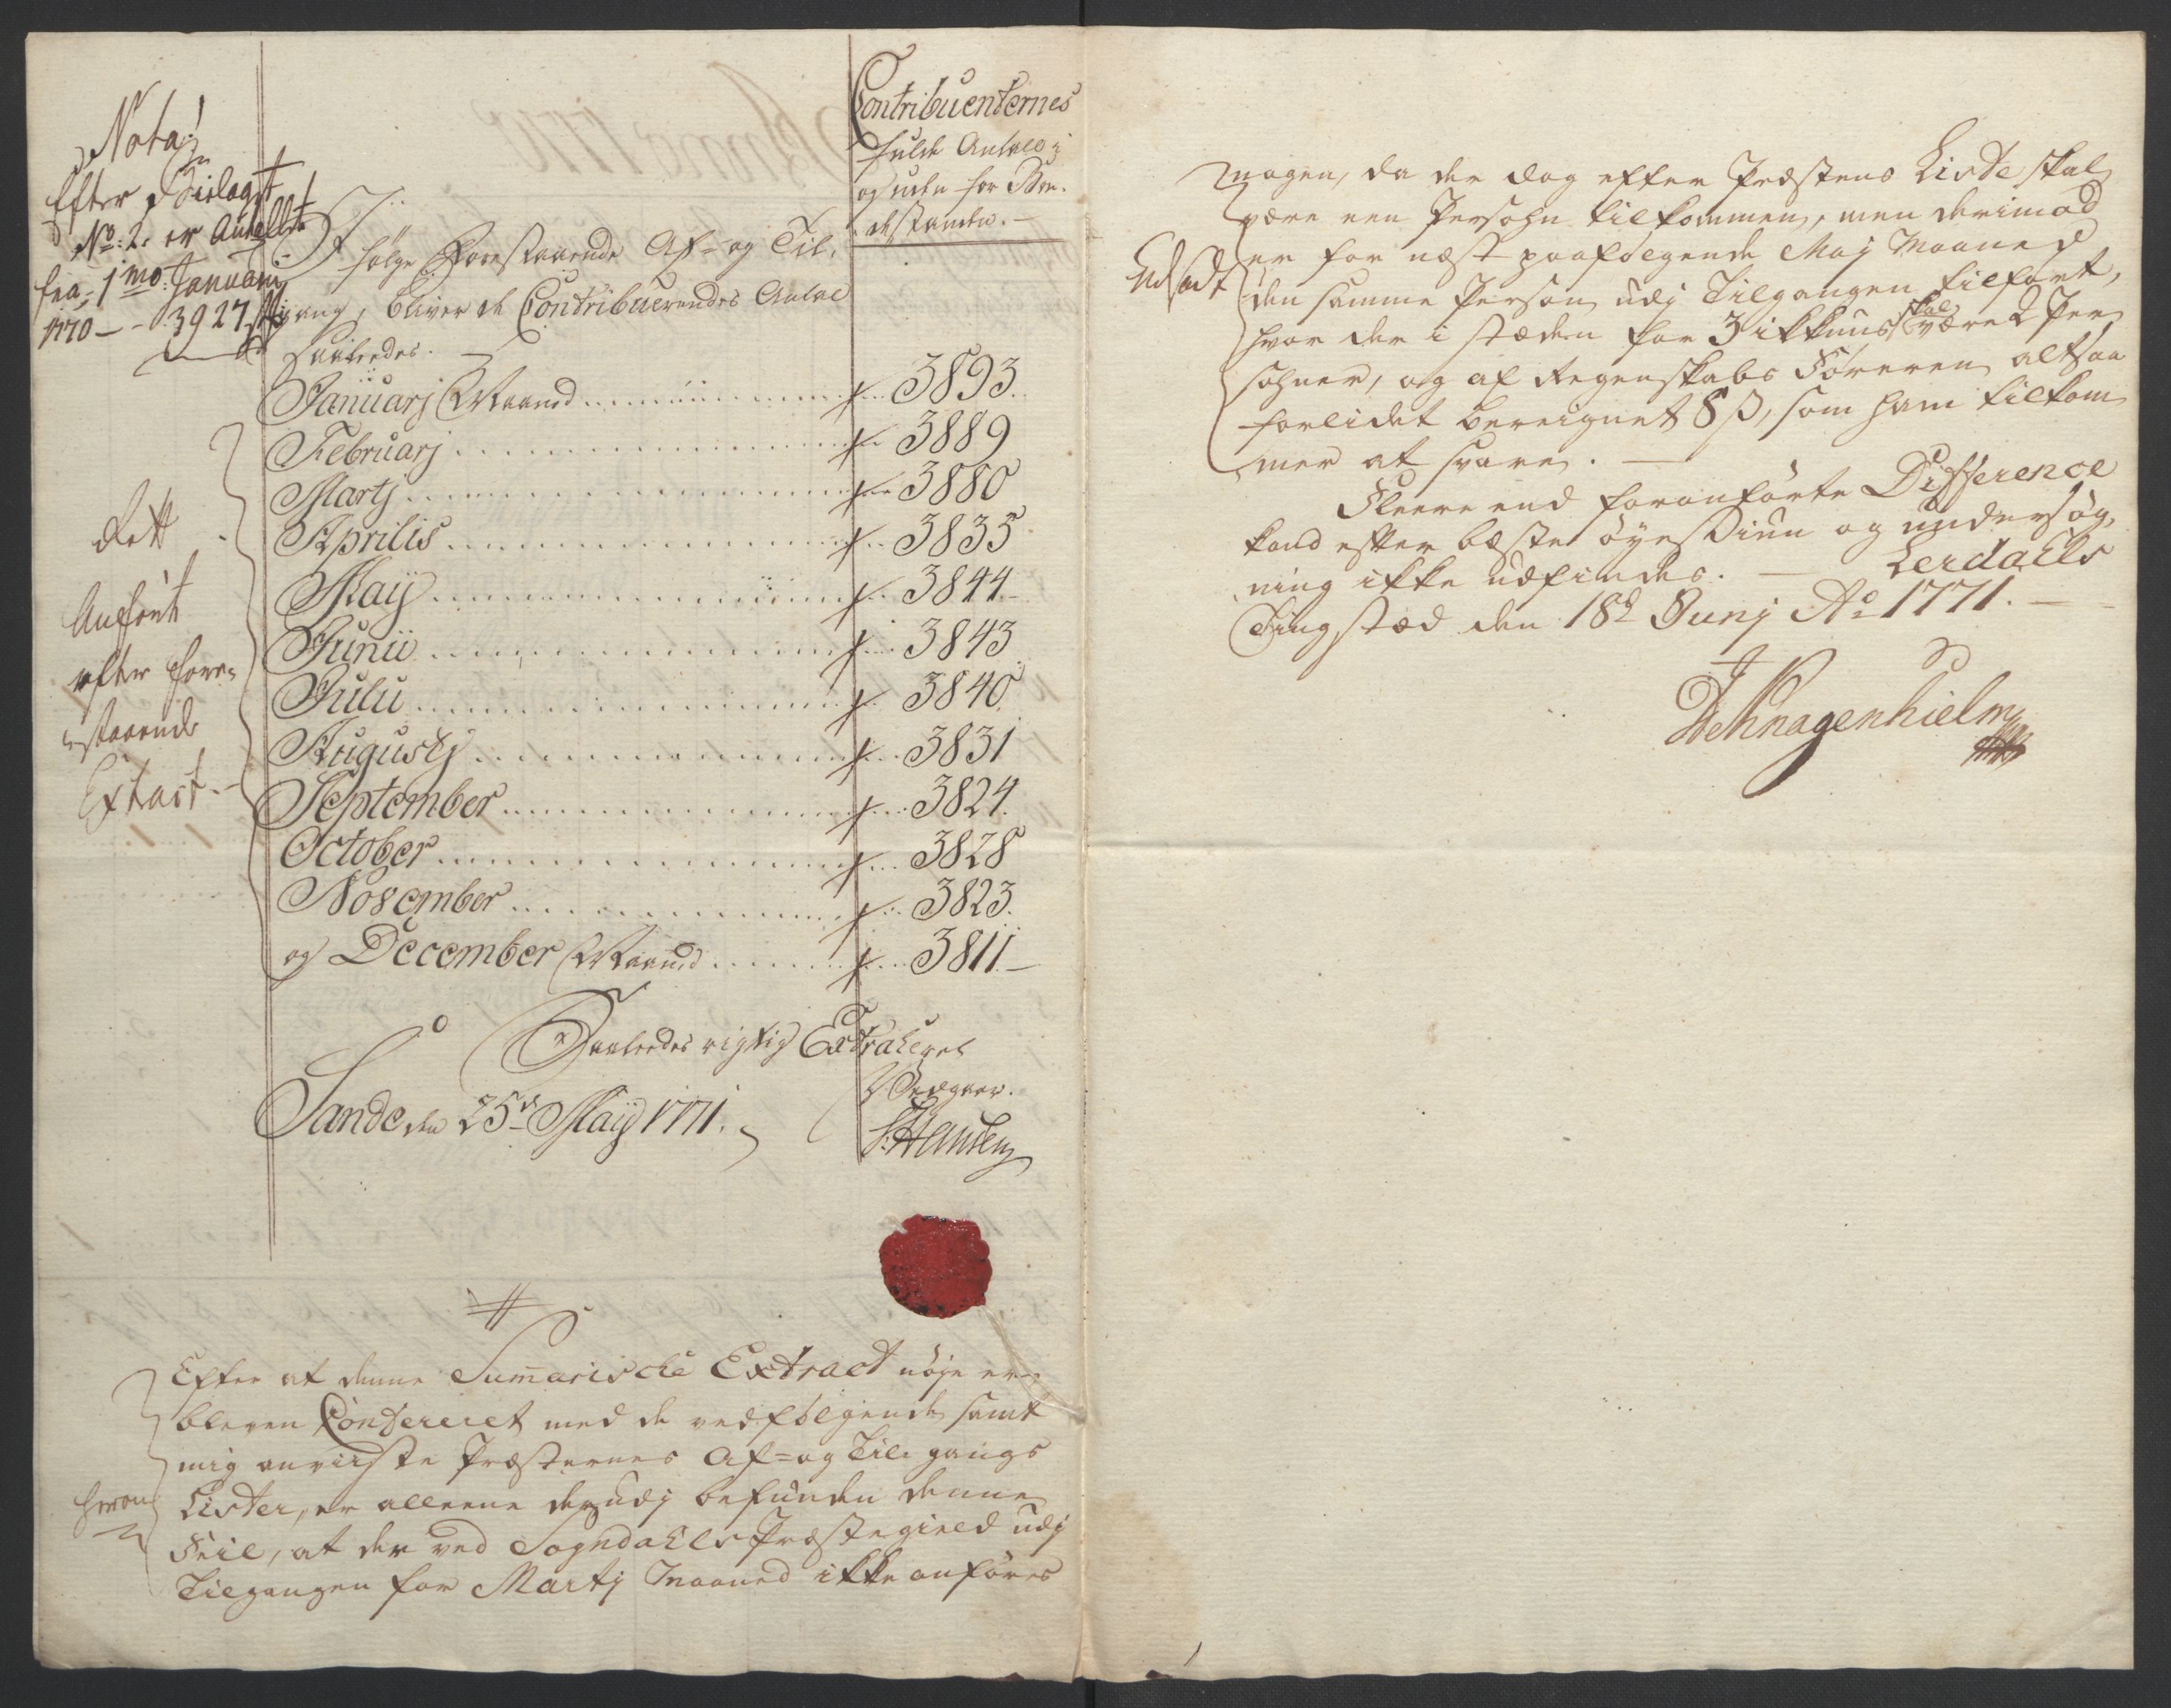 Nota!
Efter Bielaget
No: 2. er Antallet
fra 1mo: Januarii
1770 — 3927
Contribuenternes
fulde Antall i
og uden for Bon-
destanden. —
Ifølge Forestaaende Af- og Til-
gang, bliver de Contribuerendes Antal
saaledes. —
Januarj Maaned 3893.
Februarj 3889
Martj 3880
Aprilis 3835
Maij 3844
Junii 3843
Julii 3840
Augustj 3831
September 3824.
October 3828
November 3823.
og December Maaned 3811. —
Rett
Anført
efter fore-
staaende
Extract.
Saaledes rigtig Extraheret
Sande den 25de Maij 1771.
S: Hansen
Efter at denne Summariske Extract nøje er
bleven Confereret med de vedfølgende samt
mig anviiste Præsternes Af- og Til-gangs
Lister, er alleene derudj befunden denne
Feil, at der ved Sogndahls Præstegield udj
Tilgangen for Martj Maaned ikke anføres
nogen, da der dog efter Præstens Liste skal
være een Persohn tilkommen, men derimod
er for næst paafølgende Maj Maaned
den samme Person udj Tilgangen tilført,
hvor der i stæden for 3 ikkuns skal være 2 Per
sohner, og af Regenskabs Føreren altsaa
forlidet bereignet 8 s, som ham tilkom
mer at svare. —
Fleere end foranførte Difference
kand efter bæste øyesiun og undersøg-
ning ikke udfindes. — Lerdahls
Tingstæd den 18de Junj Ao 1771. —
Knagenhielm